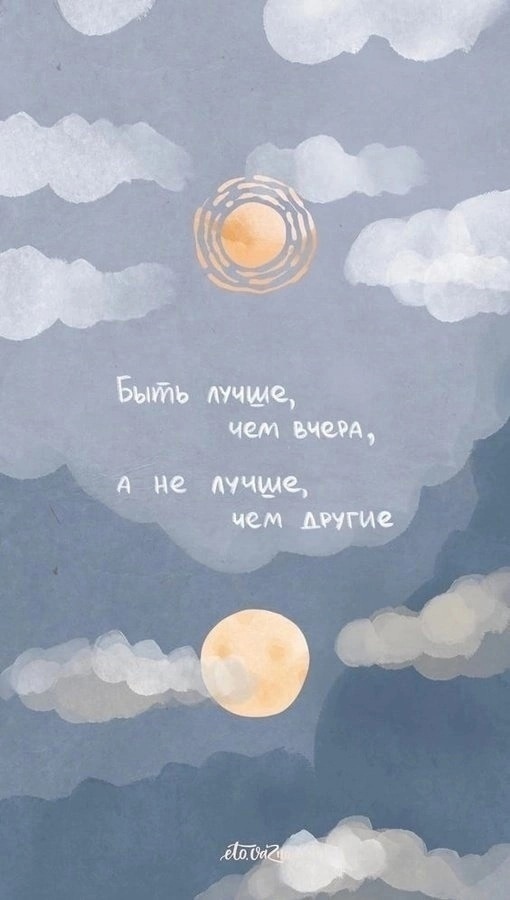 Быть лучше,
чем вчера,
а не лучше,
чем другие